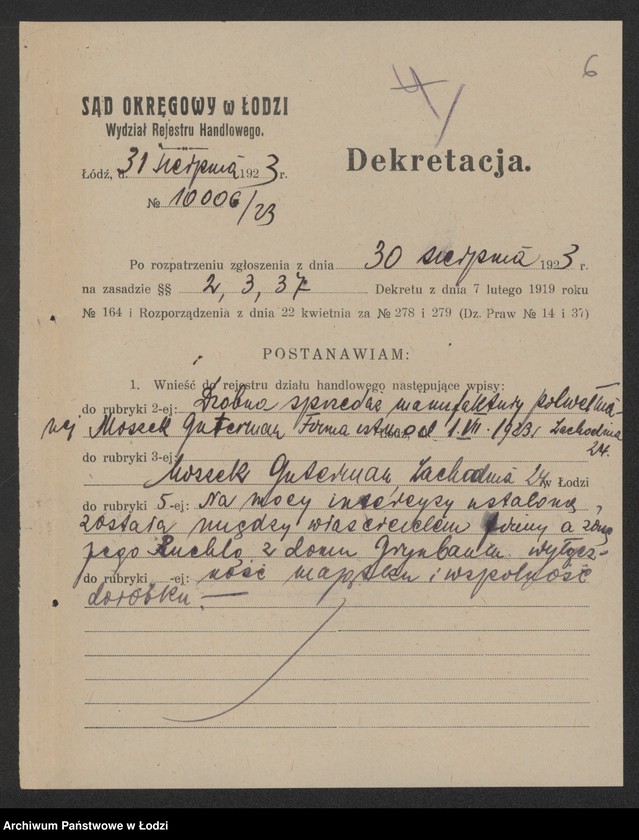 6
SĄD OKRĘGOWY w ŁODZI
Wydział Rejestru Handlowego.
Łódź, d. 31 sierpnia 1923 r.
№ 10006/23
Dekretacja.
Po rozpatrzeniu zgłoszenia z dnia 30 sierpnia 1923 r.
na zasadzie §§ 2, 3, 37 Dekretu z dnia 7 lutego 1919 roku
№ 164 i Rozporządzenia z dnia 22 kwietnia za № 278 i 279 (Dz. Praw № 14 i 37)
POSTANAWIAM:
1. Wnieść do rejestru działu handlowego następujące wpisy:
do rubryki 2-ej: Drobna sprzedaż manufaktury półwełnia-
nej Moszek Guterman Firma istn. od 1. VII. 1923 r. Zachodnia
24.
do rubryki 3-ej:
Moszek Guterman, Zachodnia 24, w Łodzi
do rubryki 5-ej: Na mocy intercyzy ustaloną
została między właścicielem firmy a żoną
jego Ruchlą z domu Grynbaum wyłącz-
do rubryki -ej: ność majątku i wspólność
dorobku. —
Archiwum Państwowe w Łodzi